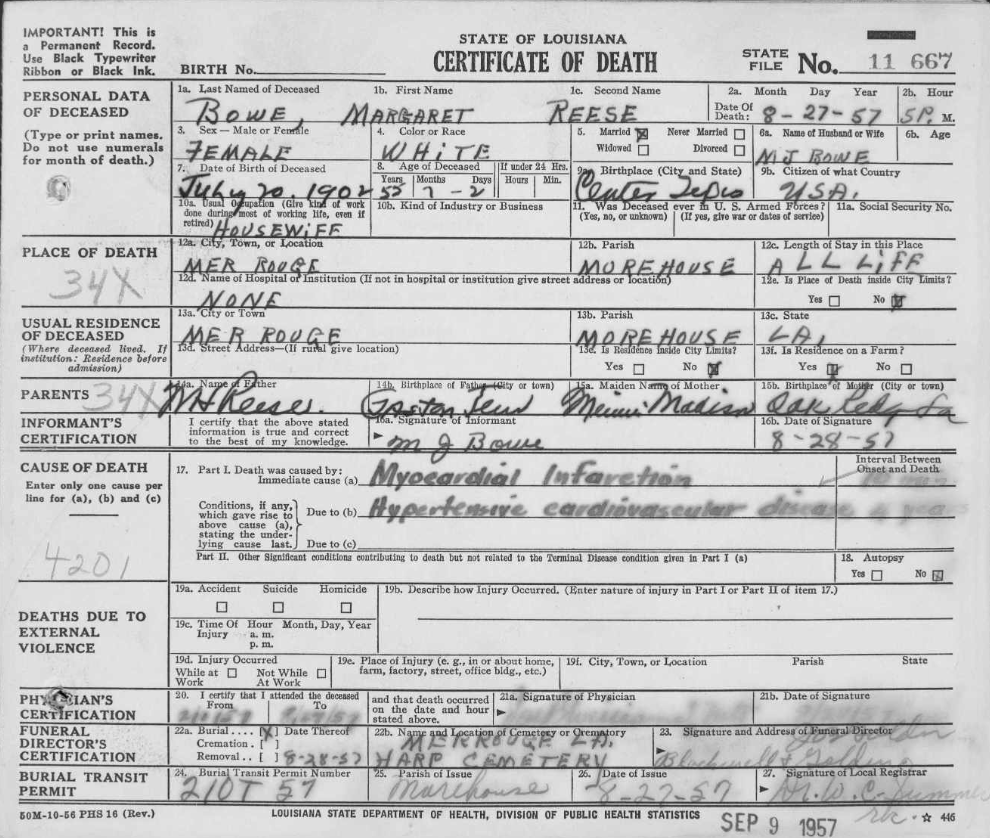 IMPORTANT! This is
a Permanent Record.
Use Black Typewriter
Ribbon or Black Ink.
BIRTH No.
STATE OF LOUISIANA
CERTIFICATE OF DEATH
STATE FILE No. 11 667
PERSONAL DATA
OF DECEASED
(Type or print names.
Do not use numerals
for month of death.)
1a. Last Named of Deceased 1b. First Name 1c. Second Name
BOWE, MARGARET REESE
2a. Month Day Year
Date Of Death: 8-27-57
2b. Hour
5P. M.
3. Sex — Male or Female
FEMALE
4. Color or Race
WHITE
5. Married ☒ Never Married ☐
Widowed ☐ Divorced ☐
6a. Name of Husband or Wife
MJ BOWE
6b. Age
7. Date of Birth of Deceased
July 20, 1902
8. Age of Deceased
Years Months Days
If under 24 Hrs.
Hours Min.
9a. Birthplace (City and State)
Center
9b. Citizen of what Country
USA.
10a. Usual Occupation (Give kind of work
done during most of working life, even if
retired) HOUSEWIFF
10b. Kind of Industry or Business
11. Was Deceased ever in U. S. Armed Forces?
(Yes, no, or unknown) (If yes, give war or dates of service)
11a. Social Security No.
PLACE OF DEATH
34X
12a. City, Town, or Location
MER ROUGE
12b. Parish
MOREHOUSE
12c. Length of Stay in this Place
ALL LIFF
12d. Name of Hospital or Institution (If not in hospital or institution give street address or location)
NONE
12e. Is Place of Death inside City Limits?
Yes ☐ No ☒
USUAL RESIDENCE
OF DECEASED
(Where deceased lived. If
institution: Residence before
admission)
13a. City or Town
MER ROUGE
13b. Parish
MOREHOUSE
13c. State
LA,
13d. Street Address—(If rural give location)
13e. Is Residence Inside City Limits?
Yes ☐ No ☒
13f. Is Residence on a Farm?
Yes ☒ No ☐
PARENTS
34X
14a. Name of Father
WH Reese.
14b. Birthplace of Father (City or town)
15a. Maiden Name of Mother
Minnie Madison
15b. Birthplace of Mother (City or town)
Oak La
INFORMANT'S
CERTIFICATION
I certify that the above stated
information is true and correct
to the best of my knowledge.
16a. Signature of Informant
M J Bowe
16b. Date of Signature
8-28-57
CAUSE OF DEATH
Enter only one cause per
line for (a), (b) and (c)
4201
17. Part I. Death was caused by:
Immediate cause (a) Myocardial Infarction
Interval Between
Onset and Death
Conditions, if any,
which gave rise to
above cause (a),
stating the under-
lying cause last.
Due to (b) Hypertensive cardiovascular disease 4 years
Due to (c)
Part II. Other Significant conditions contributing to death but not related to the Terminal Disease condition given in Part I (a)
18. Autopsy
Yes ☐ No ☒
DEATHS DUE TO
EXTERNAL
VIOLENCE
19a. Accident Suicide Homicide
☐ ☐ ☐
19b. Describe how Injury Occurred. (Enter nature of injury in Part I or Part II of item 17.)
19c. Time Of Hour Month, Day, Year
Injury a. m.
p. m.
19d. Injury Occurred
While at ☐ Not While ☐
Work At Work
19e. Place of Injury (e. g., in or about home,
farm, factory, street, office bldg., etc.)
19f. City, Town, or Location Parish State
PHYSICIAN'S
CERTIFICATION
20. I certify that I attended the deceased
From To
and that death occurred
on the date and hour
stated above.
21a. Signature of Physician
21b. Date of Signature
FUNERAL
DIRECTOR'S
CERTIFICATION
22a. Burial.... [X] Date Thereof
Cremation. [ ]
Removal.. [ ] 8-28-57
22b. Name and Location of Cemetery or Crematory
MER ROUGE LA.
HARP CEMETERY
23. Signature and Address of Funeral Director
BURIAL TRANSIT
PERMIT
24. Burial Transit Permit Number
210T 57
25. Parish of Issue
Morehouse
26. Date of Issue
8-27-57
27. Signature of Local Registrar
50M-10-56 PHS 16 (Rev.)
LOUISIANA STATE DEPARTMENT OF HEALTH, DIVISION OF PUBLIC HEALTH STATISTICS
SEP 9 1957
☆ 446